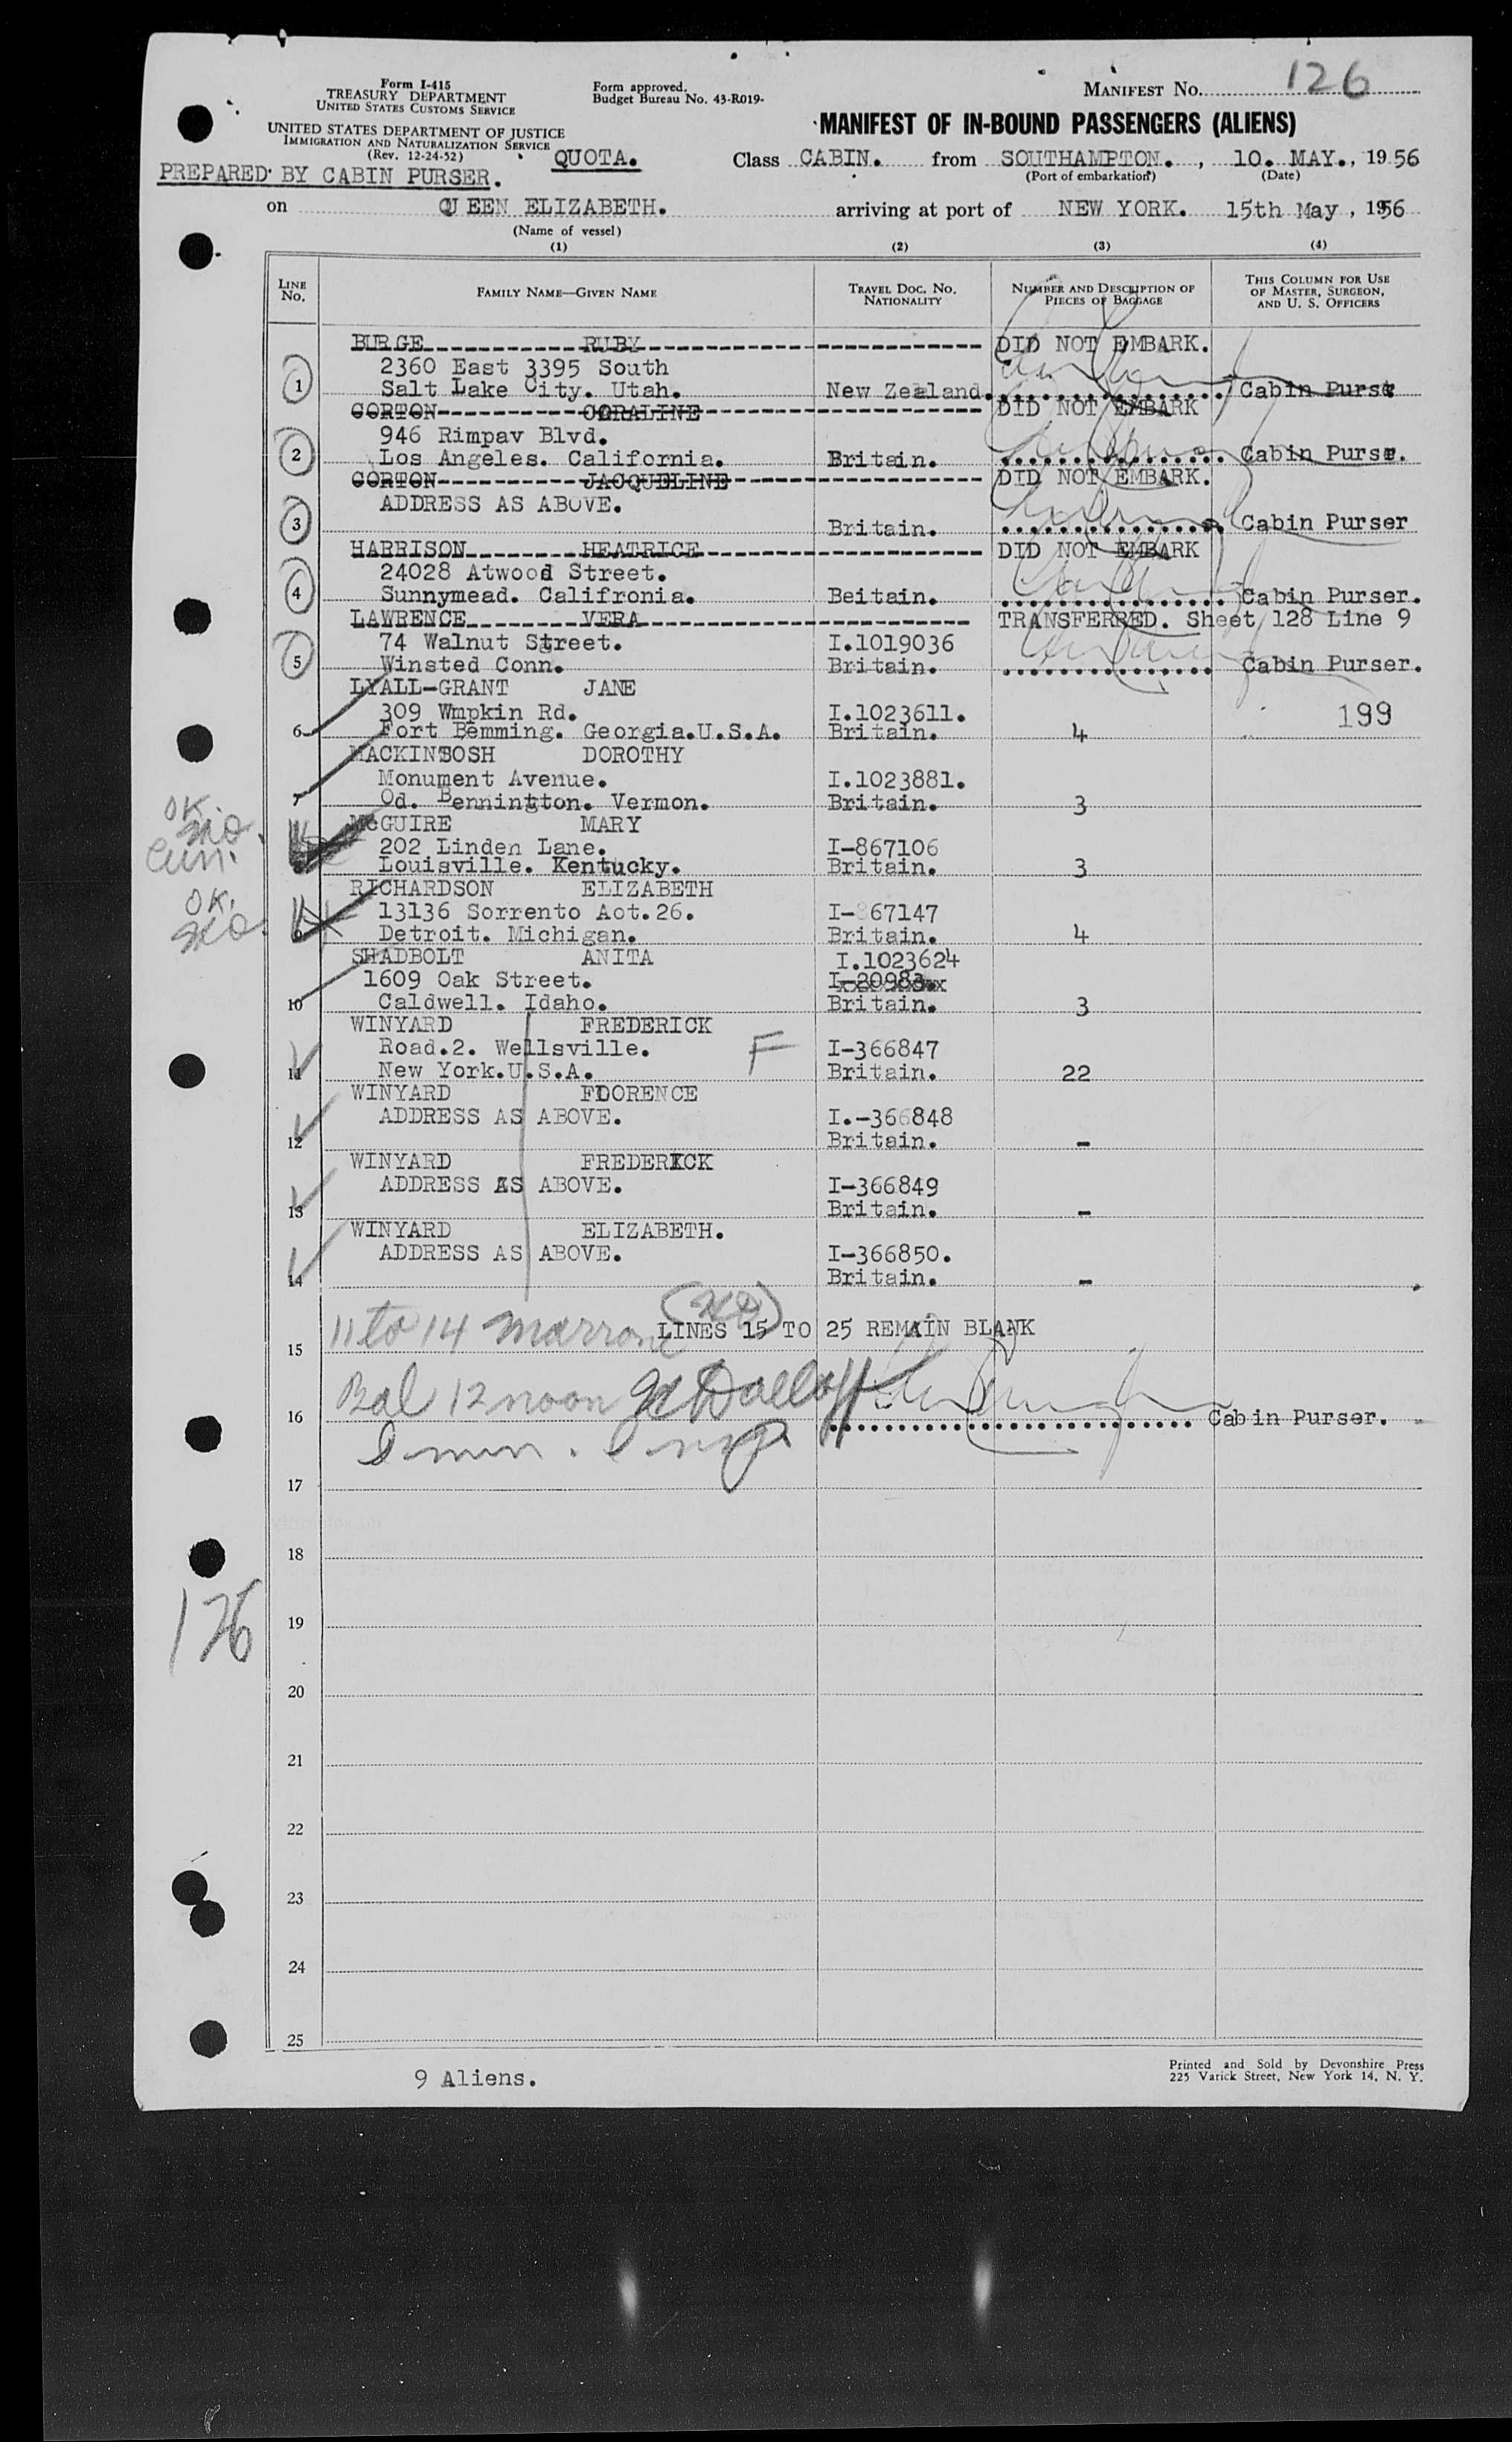 Form I-415
TREASURY DEPARTMENT
UNITED STATES CUSTOMS SERVICE
Form approved.
Budget Bureau No. 43-R019-
MANIFEST NO. 126
UNITED STATES DEPARTMENT OF JUSTICE
IMMIGRATION AND NATURALIZATION SERVICE
(Rev. 12-24-52)
QUOTA.
PREPARED BY CABIN PURSER.
MANIFEST OF IN-BOUND PASSENGERS (ALIENS)
Class CABIN. from SOUTHAMPTON. , 10. MAY., 1956
(Port of embarkation) (Date)
on QUEEN ELIZABETH. arriving at port of NEW YORK. 15th May, 1956
(Name of vessel)
(1) (2) (3) (4)
LINE No. FAMILY NAME—GIVEN NAME TRAVEL DOC. NO. NATIONALITY NUMBER AND DESCRIPTION OF PIECES OF BAGGAGE THIS COLUMN FOR USE OF MASTER, SURGEON, AND U. S. OFFICERS
BURGE RUBY DID NOT EMBARK.
2360 East 3395 South
1 Salt Lake City. Utah. New Zealand. Cabin Purse
CORTON DID NOT EMBARK
946 Rimpav Blvd.
2 Los Angeles. California. Britain. Cabin Purser.
CORTON JACQUELINE DID NOT EMBARK.
ADDRESS AS ABOVE.
3 Britain. Cabin Purser
HARRISON HEATRICE DID NOT EMBARK
24028 Atwood Street.
4 Sunnymead. Califronia. Beitain. Cabin Purser.
LAWRENCE VERA TRANSFERRED. Sheet 128 Line 9
74 Walnut Street. I.1019036
5 Winsted Conn. Britain. Cabin Purser.
LYALL-GRANT JANE
309 Wmpkin Rd. I.1023611. 199
6 Fort Bemming. Georgia.U.S.A. Britain. 4
MACKINTOSH DOROTHY
Monument Avenue. I.1023881.
7 Od. Bennington. Vermon. Britain. 3
OK.
McGUIRE MARY
202 Linden Lane. I-867106
Louisville. Kentucky. Britain. 3
OK.
RICHARDSON ELIZABETH
13136 Sorrento Aot.26. I-867147
9 Detroit. Michigan. Britain. 4
SHADBOLT ANITA I.1023624
1609 Oak Street. I-20983.
10 Caldwell. Idaho. Britain. 3
WINYARD FREDERICK
Road.2. Wellsville. F I-366847
11 New York.U.S.A. Britain. 22
WINYARD FLORENCE
ADDRESS AS ABOVE. I.-366848
12 Britain. -
WINYARD FREDERICK
ADDRESS AS ABOVE. I-366849
13 Britain. -
WINYARD ELIZABETH.
ADDRESS AS ABOVE. I-366850.
14 Britain. -
11 to 14 Marrone
LINES 15 TO 25 REMAIN BLANK
15
Bal 12 noon
16 Cabin Purser.
17
18
126
19
20
21
22
23
24
25
9 Aliens.
Printed and Sold by Devonshire Press
225 Varick Street, New York 14, N. Y.